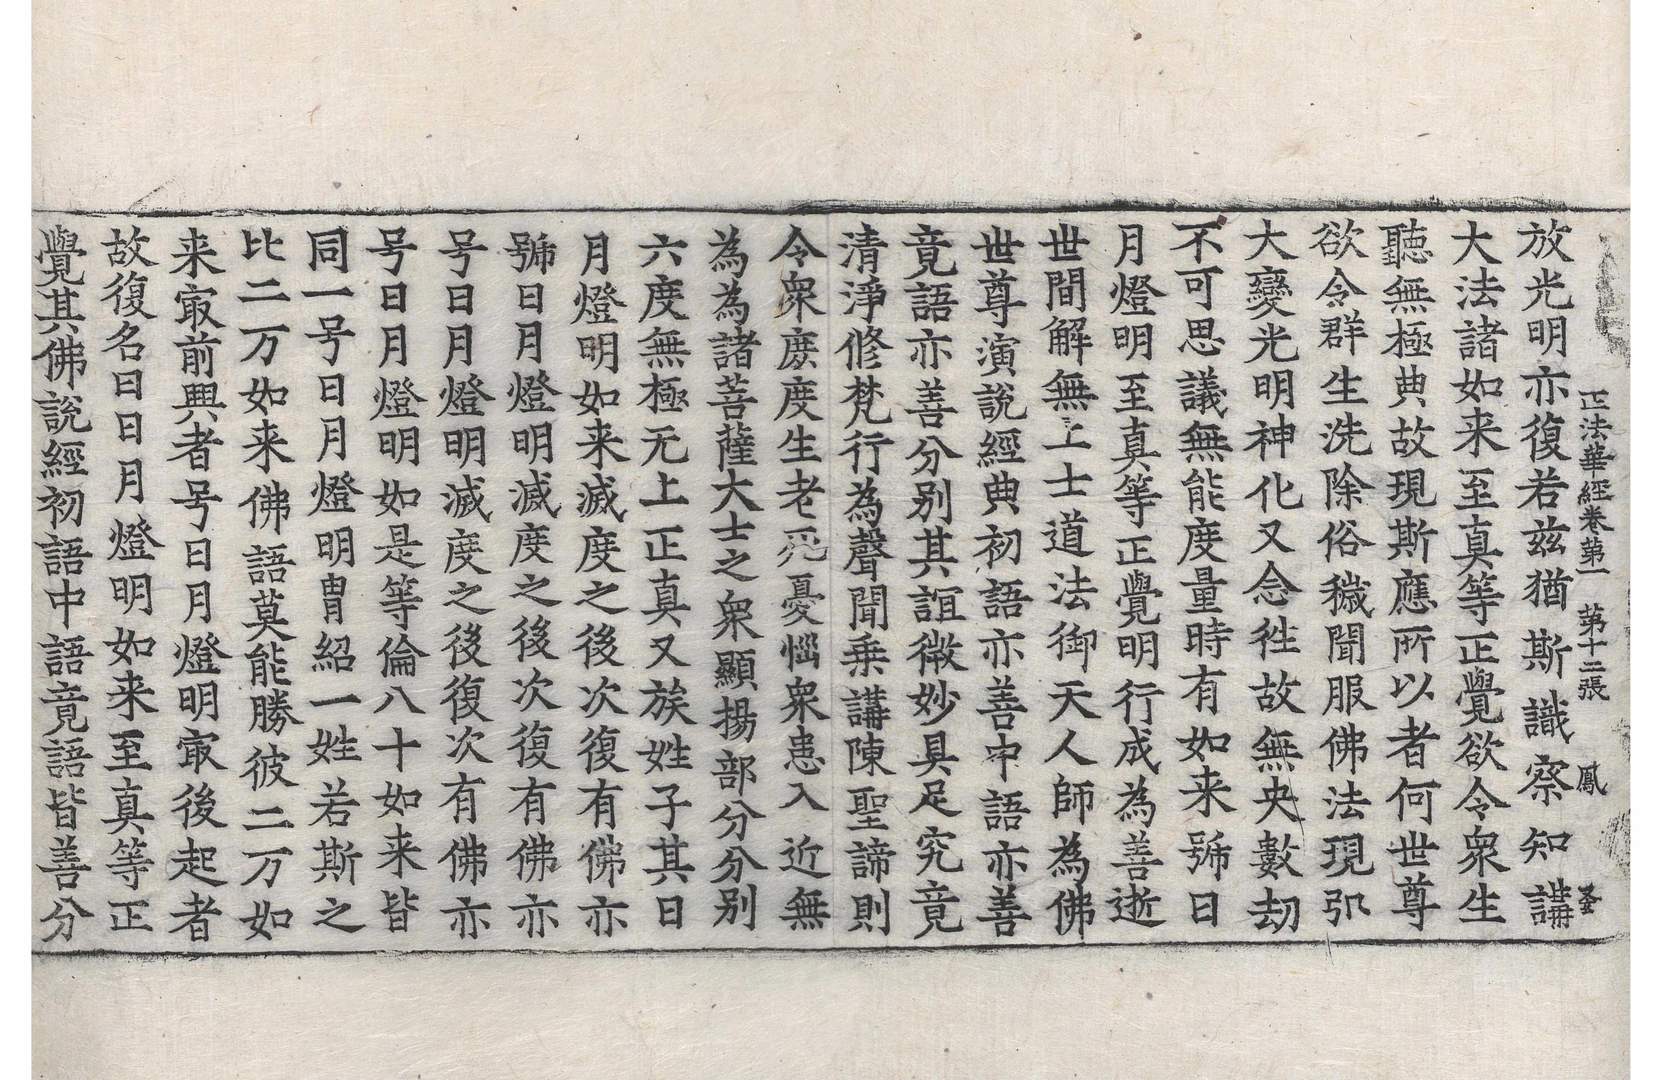 正法華經卷第一 第十二張 鳳
放光明亦復若兹猶斯識察知講
大法諸如来至真等正覺欲令衆生
聽無極典故現斯應所以者何世尊
欲令群生洗除俗穢聞服佛法現弘
大變光明神化又念徃故無央數劫
不可思議無能度量時有如来號日
月燈明至真等正覺明行成為善逝
世間解無上士道法御天人師為佛
世尊演說經典初語亦善中語亦善
竟語亦善分别其誼微妙具足究竟
清淨修梵行為聲聞乗講陳聖諦則
令衆庶度生老死憂惱衆患入近無
為為諸菩薩大士之衆顯揚部分分别
六度無極无上正真又族姓子其日
月燈明如来滅度之後次復有佛亦
號日月燈明滅度之後次復有佛亦
号日月燈明滅度之後復次有佛亦
号日月燈明如是等倫八十如来皆
同一号日月燈明胄紹一姓若斯之
比二万如来佛語莫能勝彼二万如
来㝡前興者号日月燈明㝡後起者
故復名曰日月燈明如来至真等正
覺其佛說經初語中語竟語皆善分